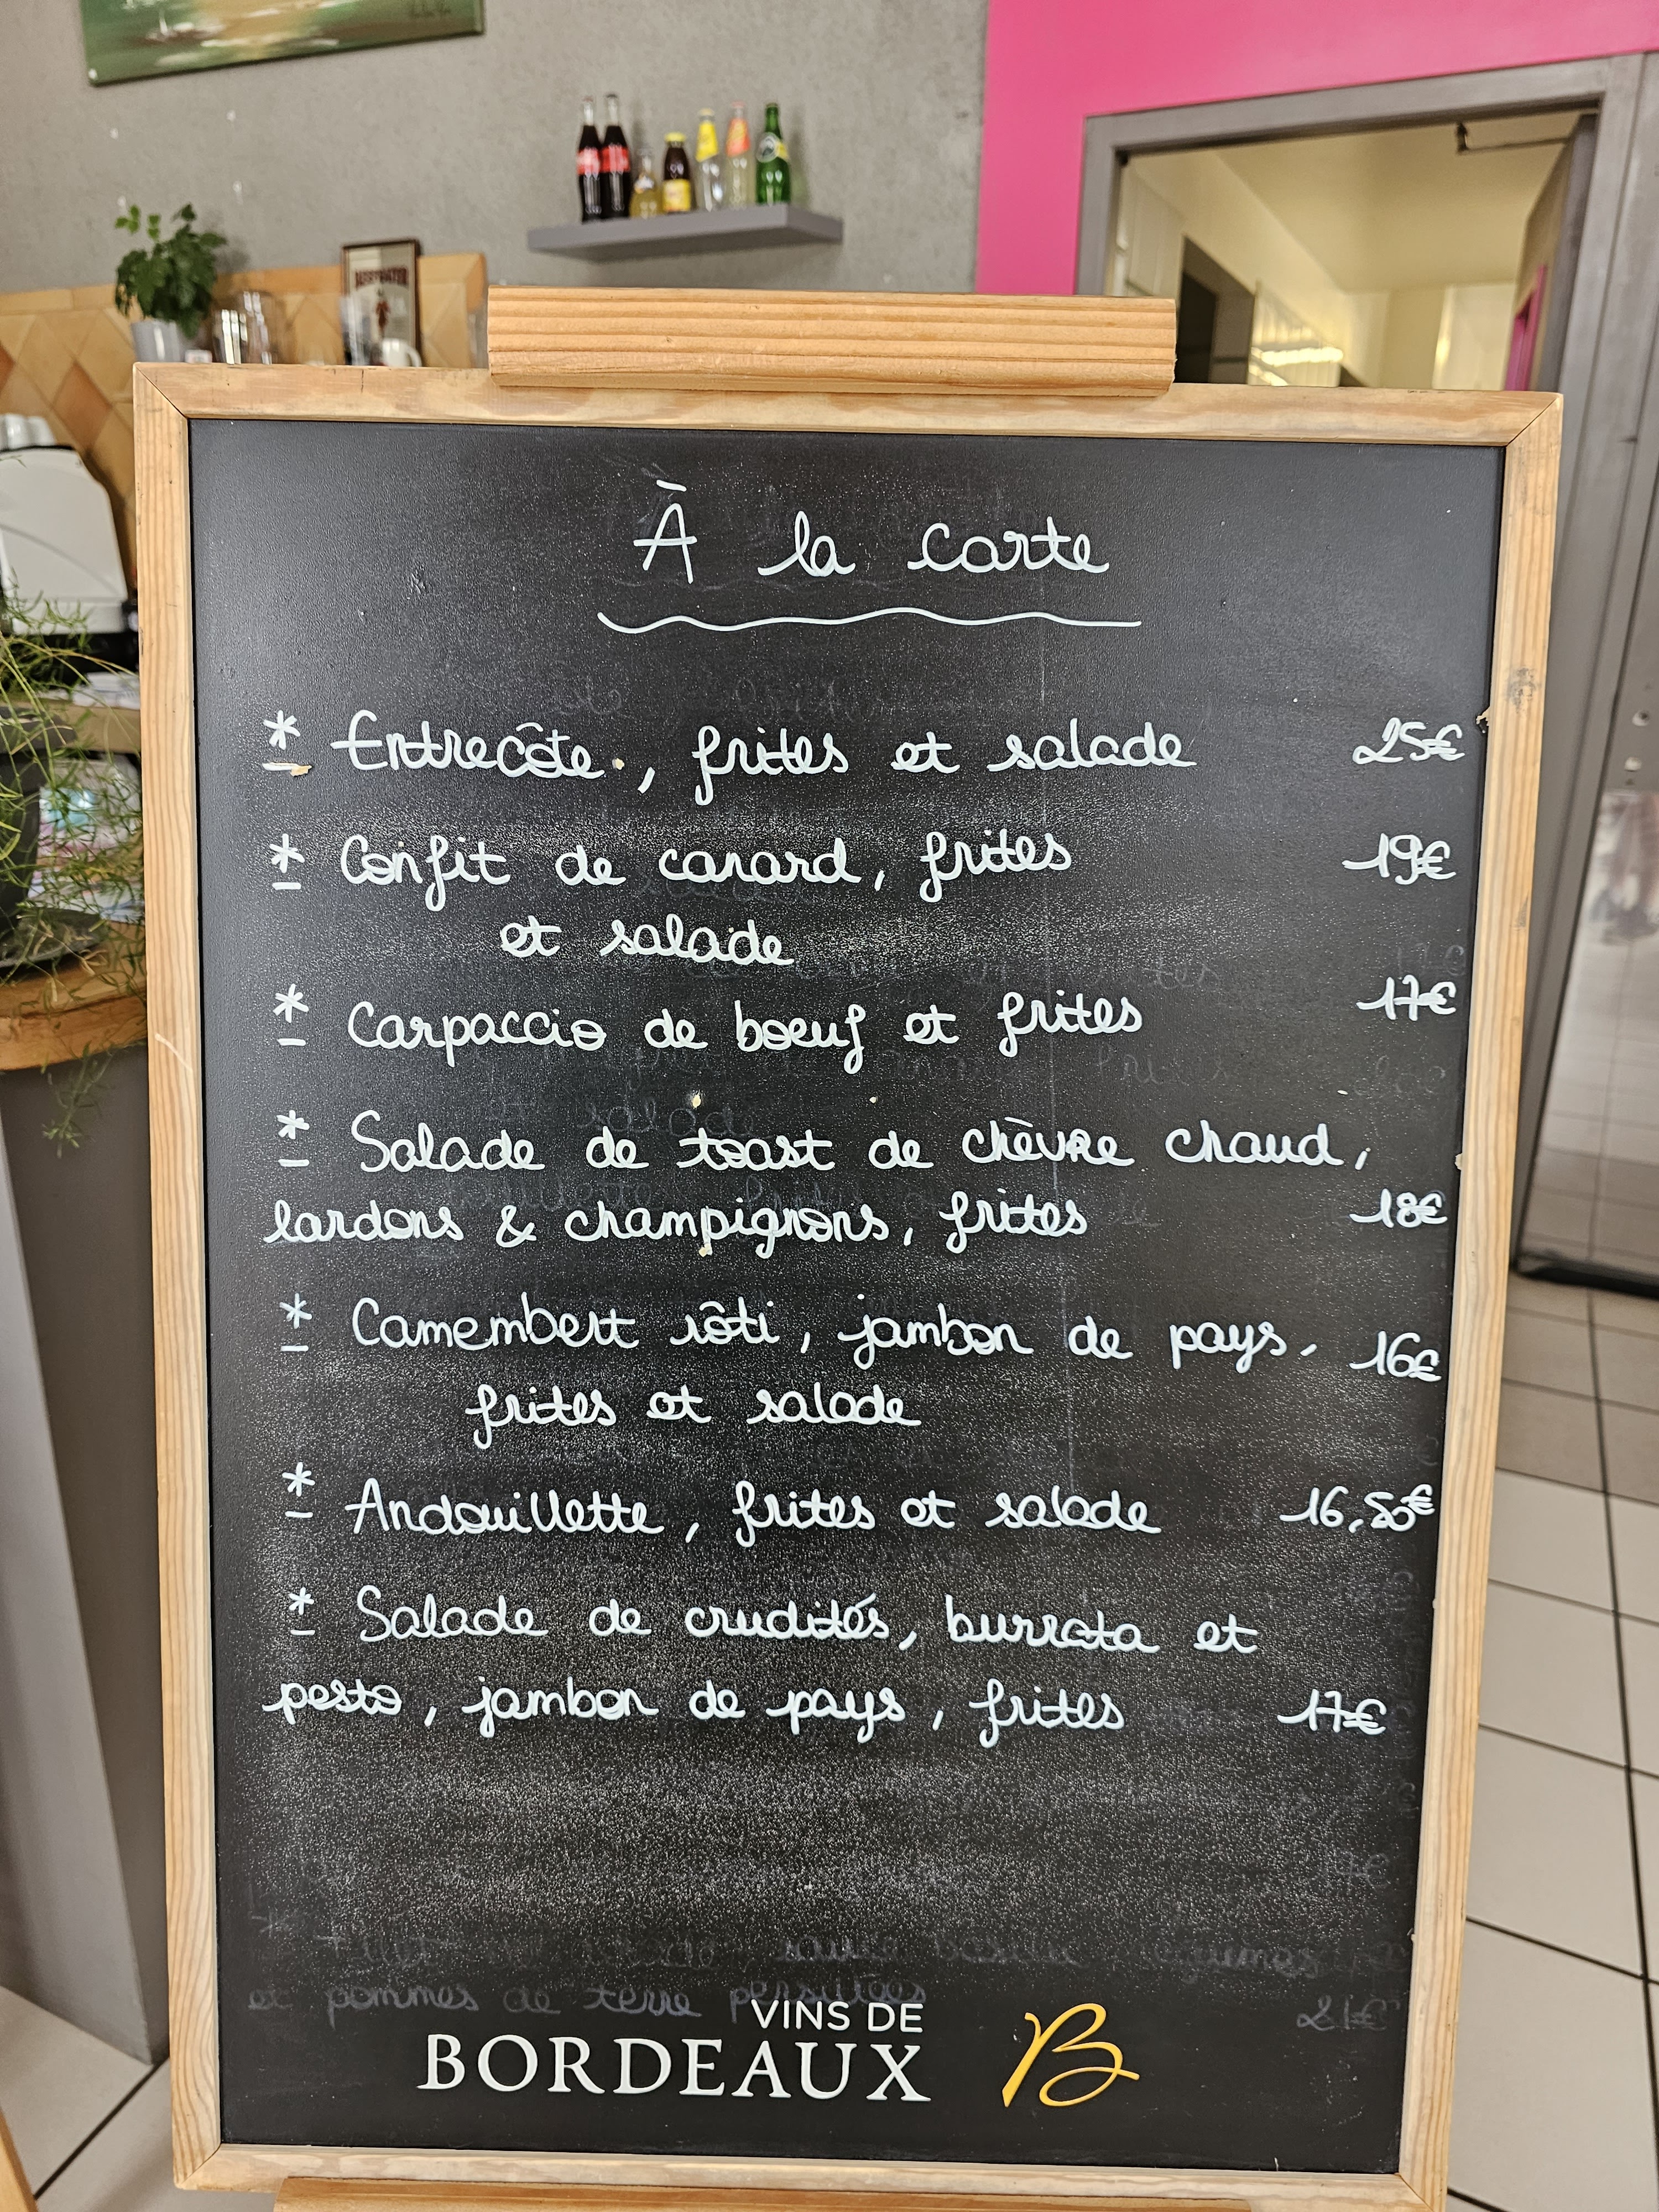 BEEFEATER
À la carte
* Entrecôte, frites et salade 25€
* Confit de canard, frites 19€
et salade
* Carpaccio de boeuf et frites 17€
* Salade de toast de chèvre chaud,
lardons & champignons, frites 18€
* Camembert rôti, jambon de pays, 16€
frites et salade
* Andouillette, frites et salade 16,50€
* Salade de crudités, burrata et
pesto, jambon de pays, frites 17€
et pommes de terre persillées 21€
VINS DE
BORDEAUX B